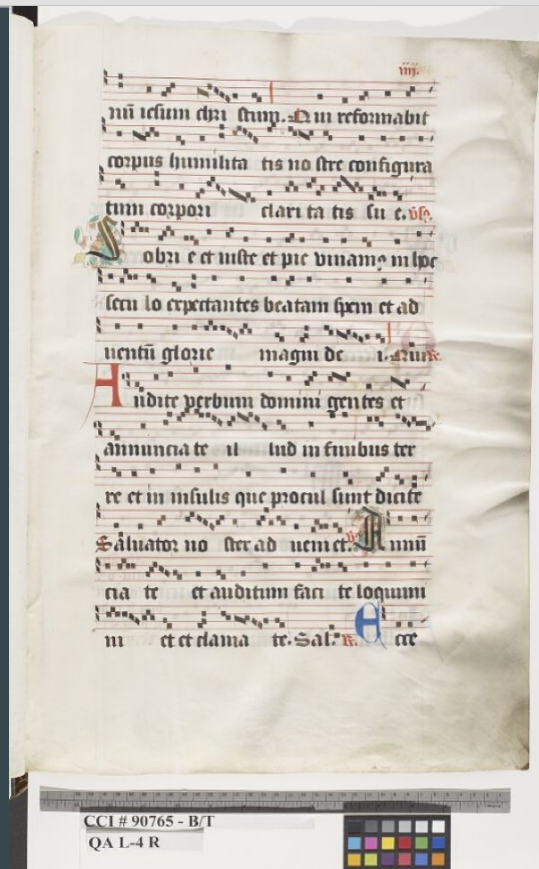 iiij.
nū iesum chri stum. Qui reformabit
corpus humilita tis no stre configura
tum corpori clari ta tis su e. ℣
Sobri e et iuste et pie viuamꝰ in hoc
secu lo expectantes beatam spem et ad
uentū glorie magni de i. Qui R.
Audite verbum domini gentes et
annuncia te il lud in finibus ter
re et in insulis que procul sunt dicite
Saluator no ster ad ueniet. ℣ Annū
cia te et auditum faci te loquimi
ni et et clama te. Sal. R. Ecce
CCI # 90765 - B/T
QA L-4 R